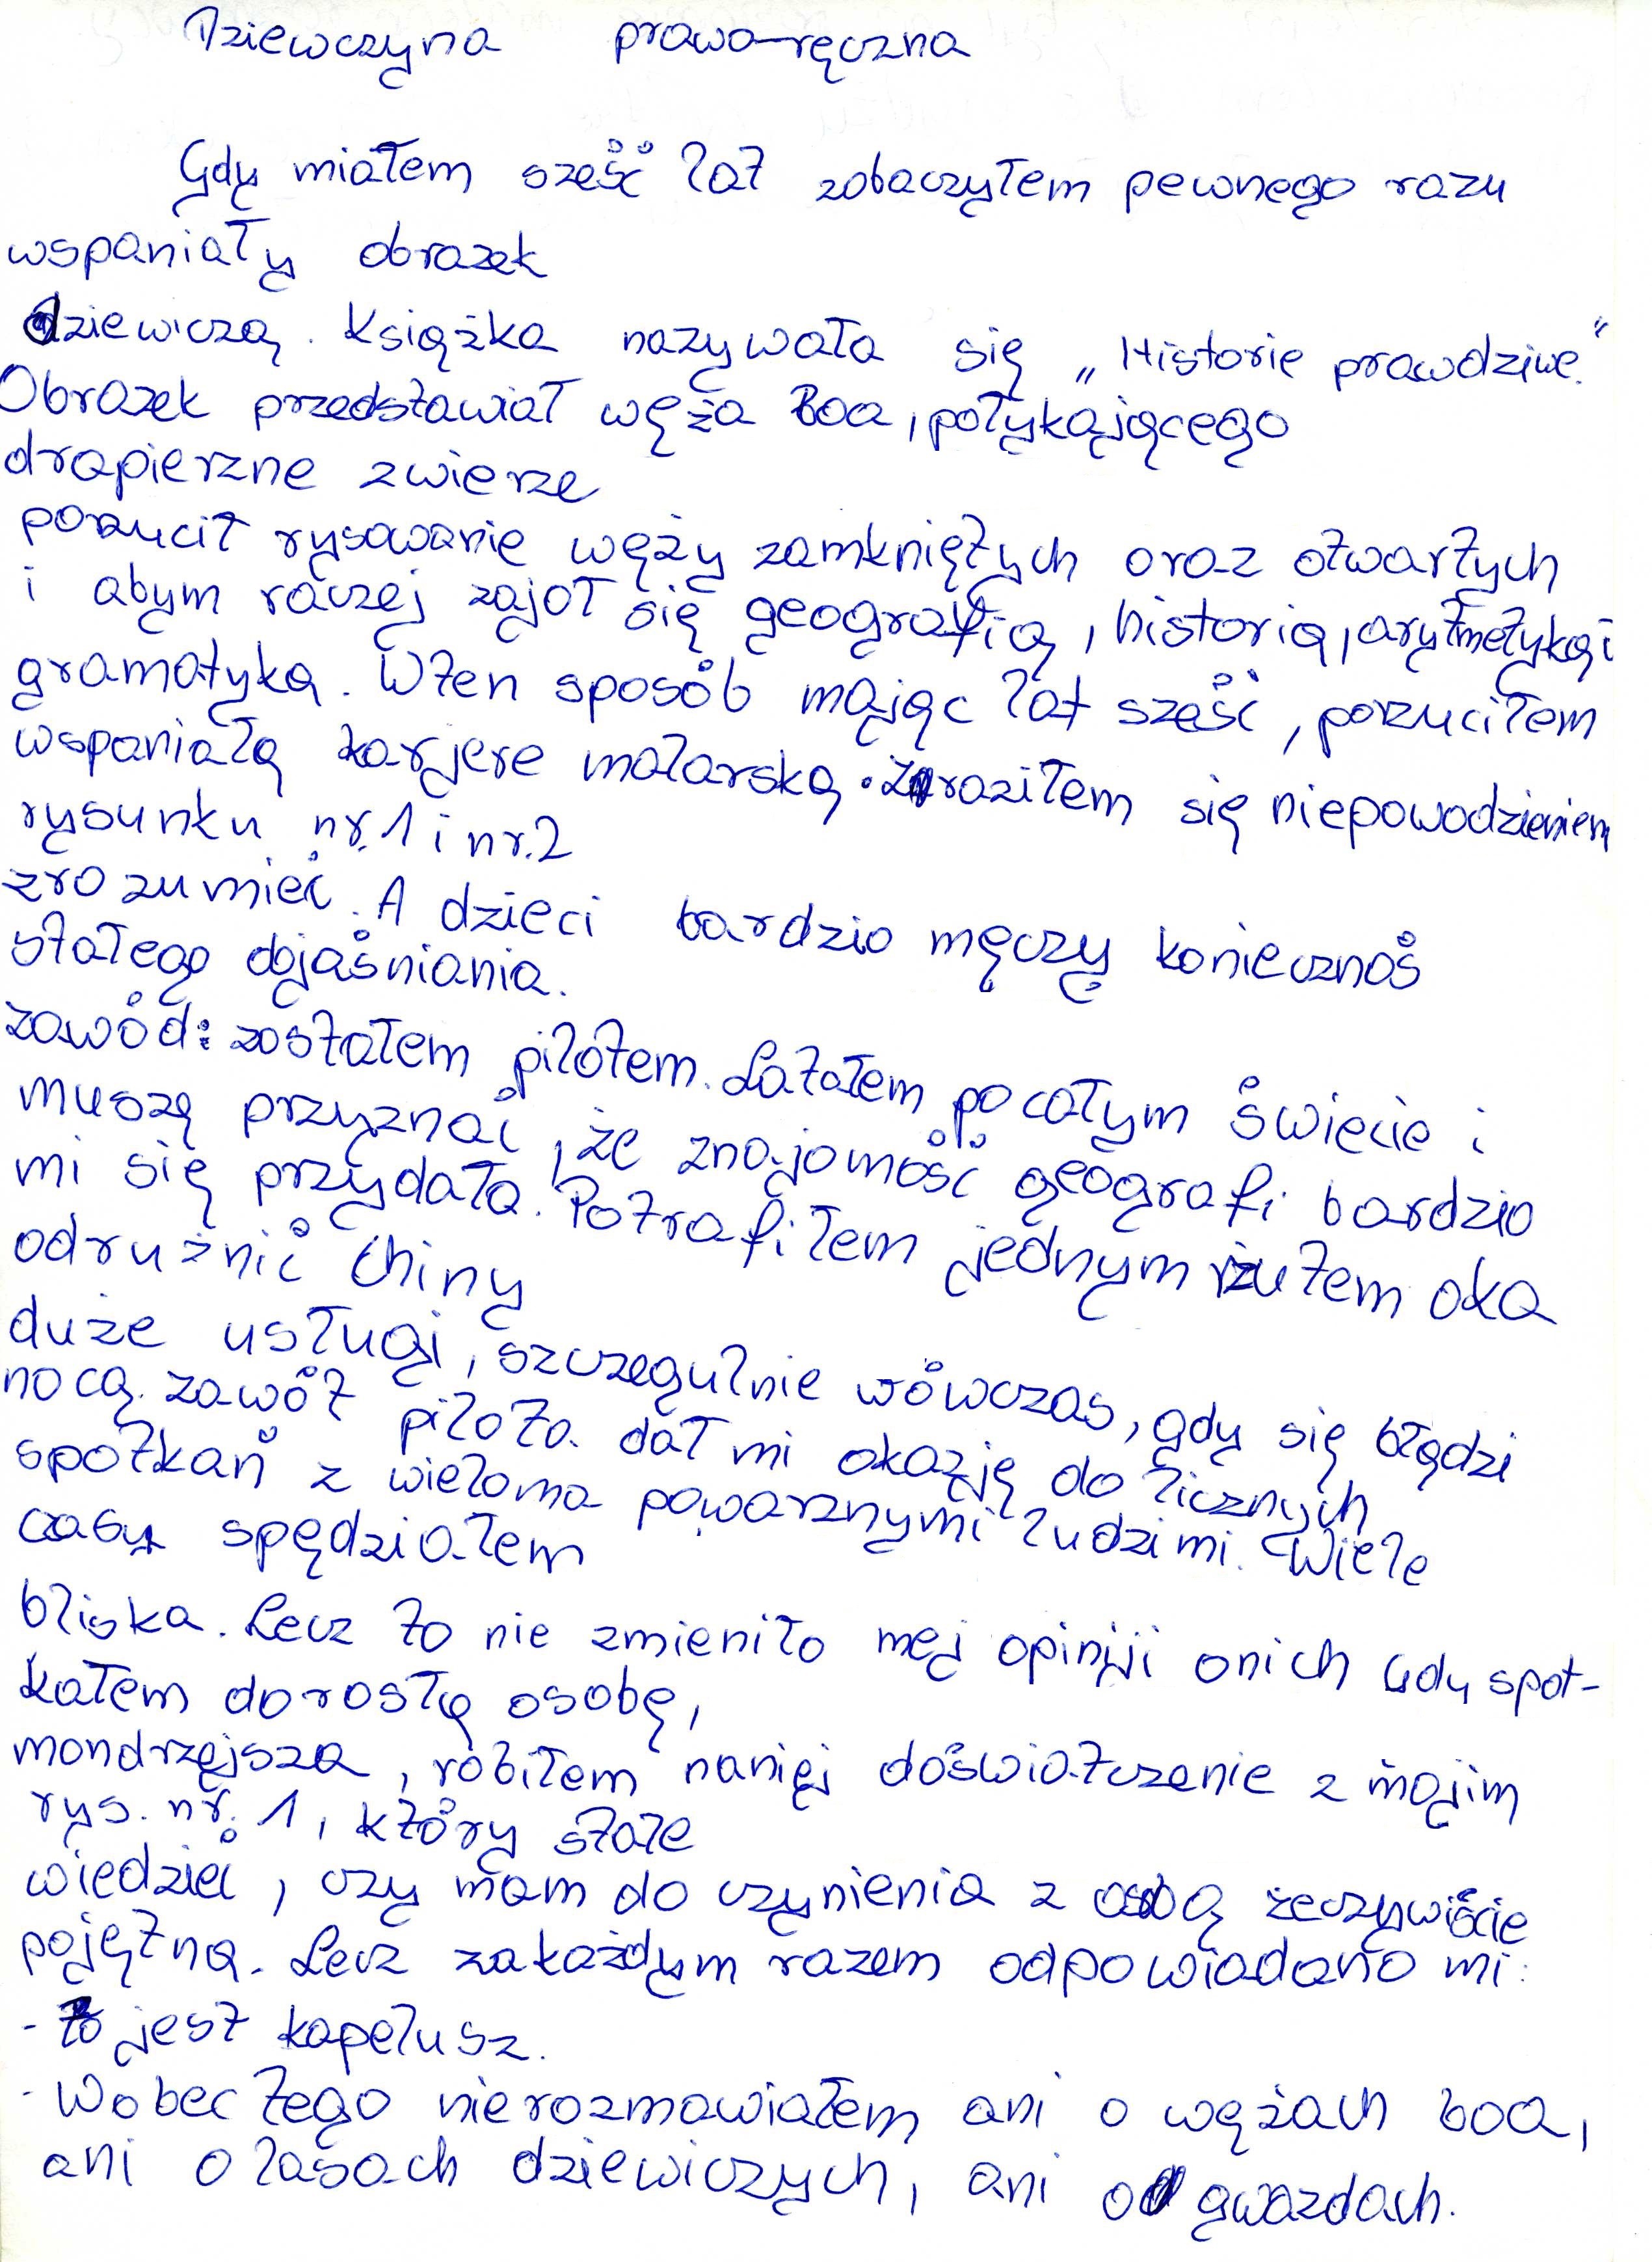 Dziewczyna prawo-ręczna
Gdy miałem sześć lat zobaczyłem pewnego razu
wspaniały obrazek
dziewiczą. Książka nazywała się „Historie prawdziwe."
Obrazek przedstawiał węża Boa, połykającego
drapierzne zwierze
porzucił rysowanie węży zamkniętych oraz otwartych
i abym raczej zajoł się geografią, historią, arytmetyką i
gramatyką. Wten sposób mając lat sześć, porzuciłem
wspaniałą karjere malarską. Zraziłem się niepowodzieniem
rysunku nr. 1 i nr. 2
zrozumieć. A dzieci bardzio męczy koniecznoś
stałego dojaśniania.
zawód: zostałem pilotem. Latałem po całym świecie i
muszę przyznać, że znajomość geografi bardzio
mi się przydała. Potrafiłem jednym rzutem oka
odrużnić Chiny
duże usługi, szczegulnie wówczas, gdy się błądzi
nocą. zawót pilota dał mi okazję do licznych
spotkań z wieloma powarznymi ludzimi. Wiele
czasu spędziałem
bliska. Lecz to nie zmieniło mej opinji onich Gdy spot-
kałem dorosłą osobę,
mondrzejsza, robiłem naniej doświatczenie z mojim
rys. nr. 1, który stale
wiedzieć, czy mam do czynienia z osobą żeczywiście
pojętną. Lecz zakażdym razem odpowiadano mi:
- to jest kapelusz.
- Wobec tego nierozmawiałem ani o wężach boa,
ani o lasach dziewiczych, ani o gwazdach.